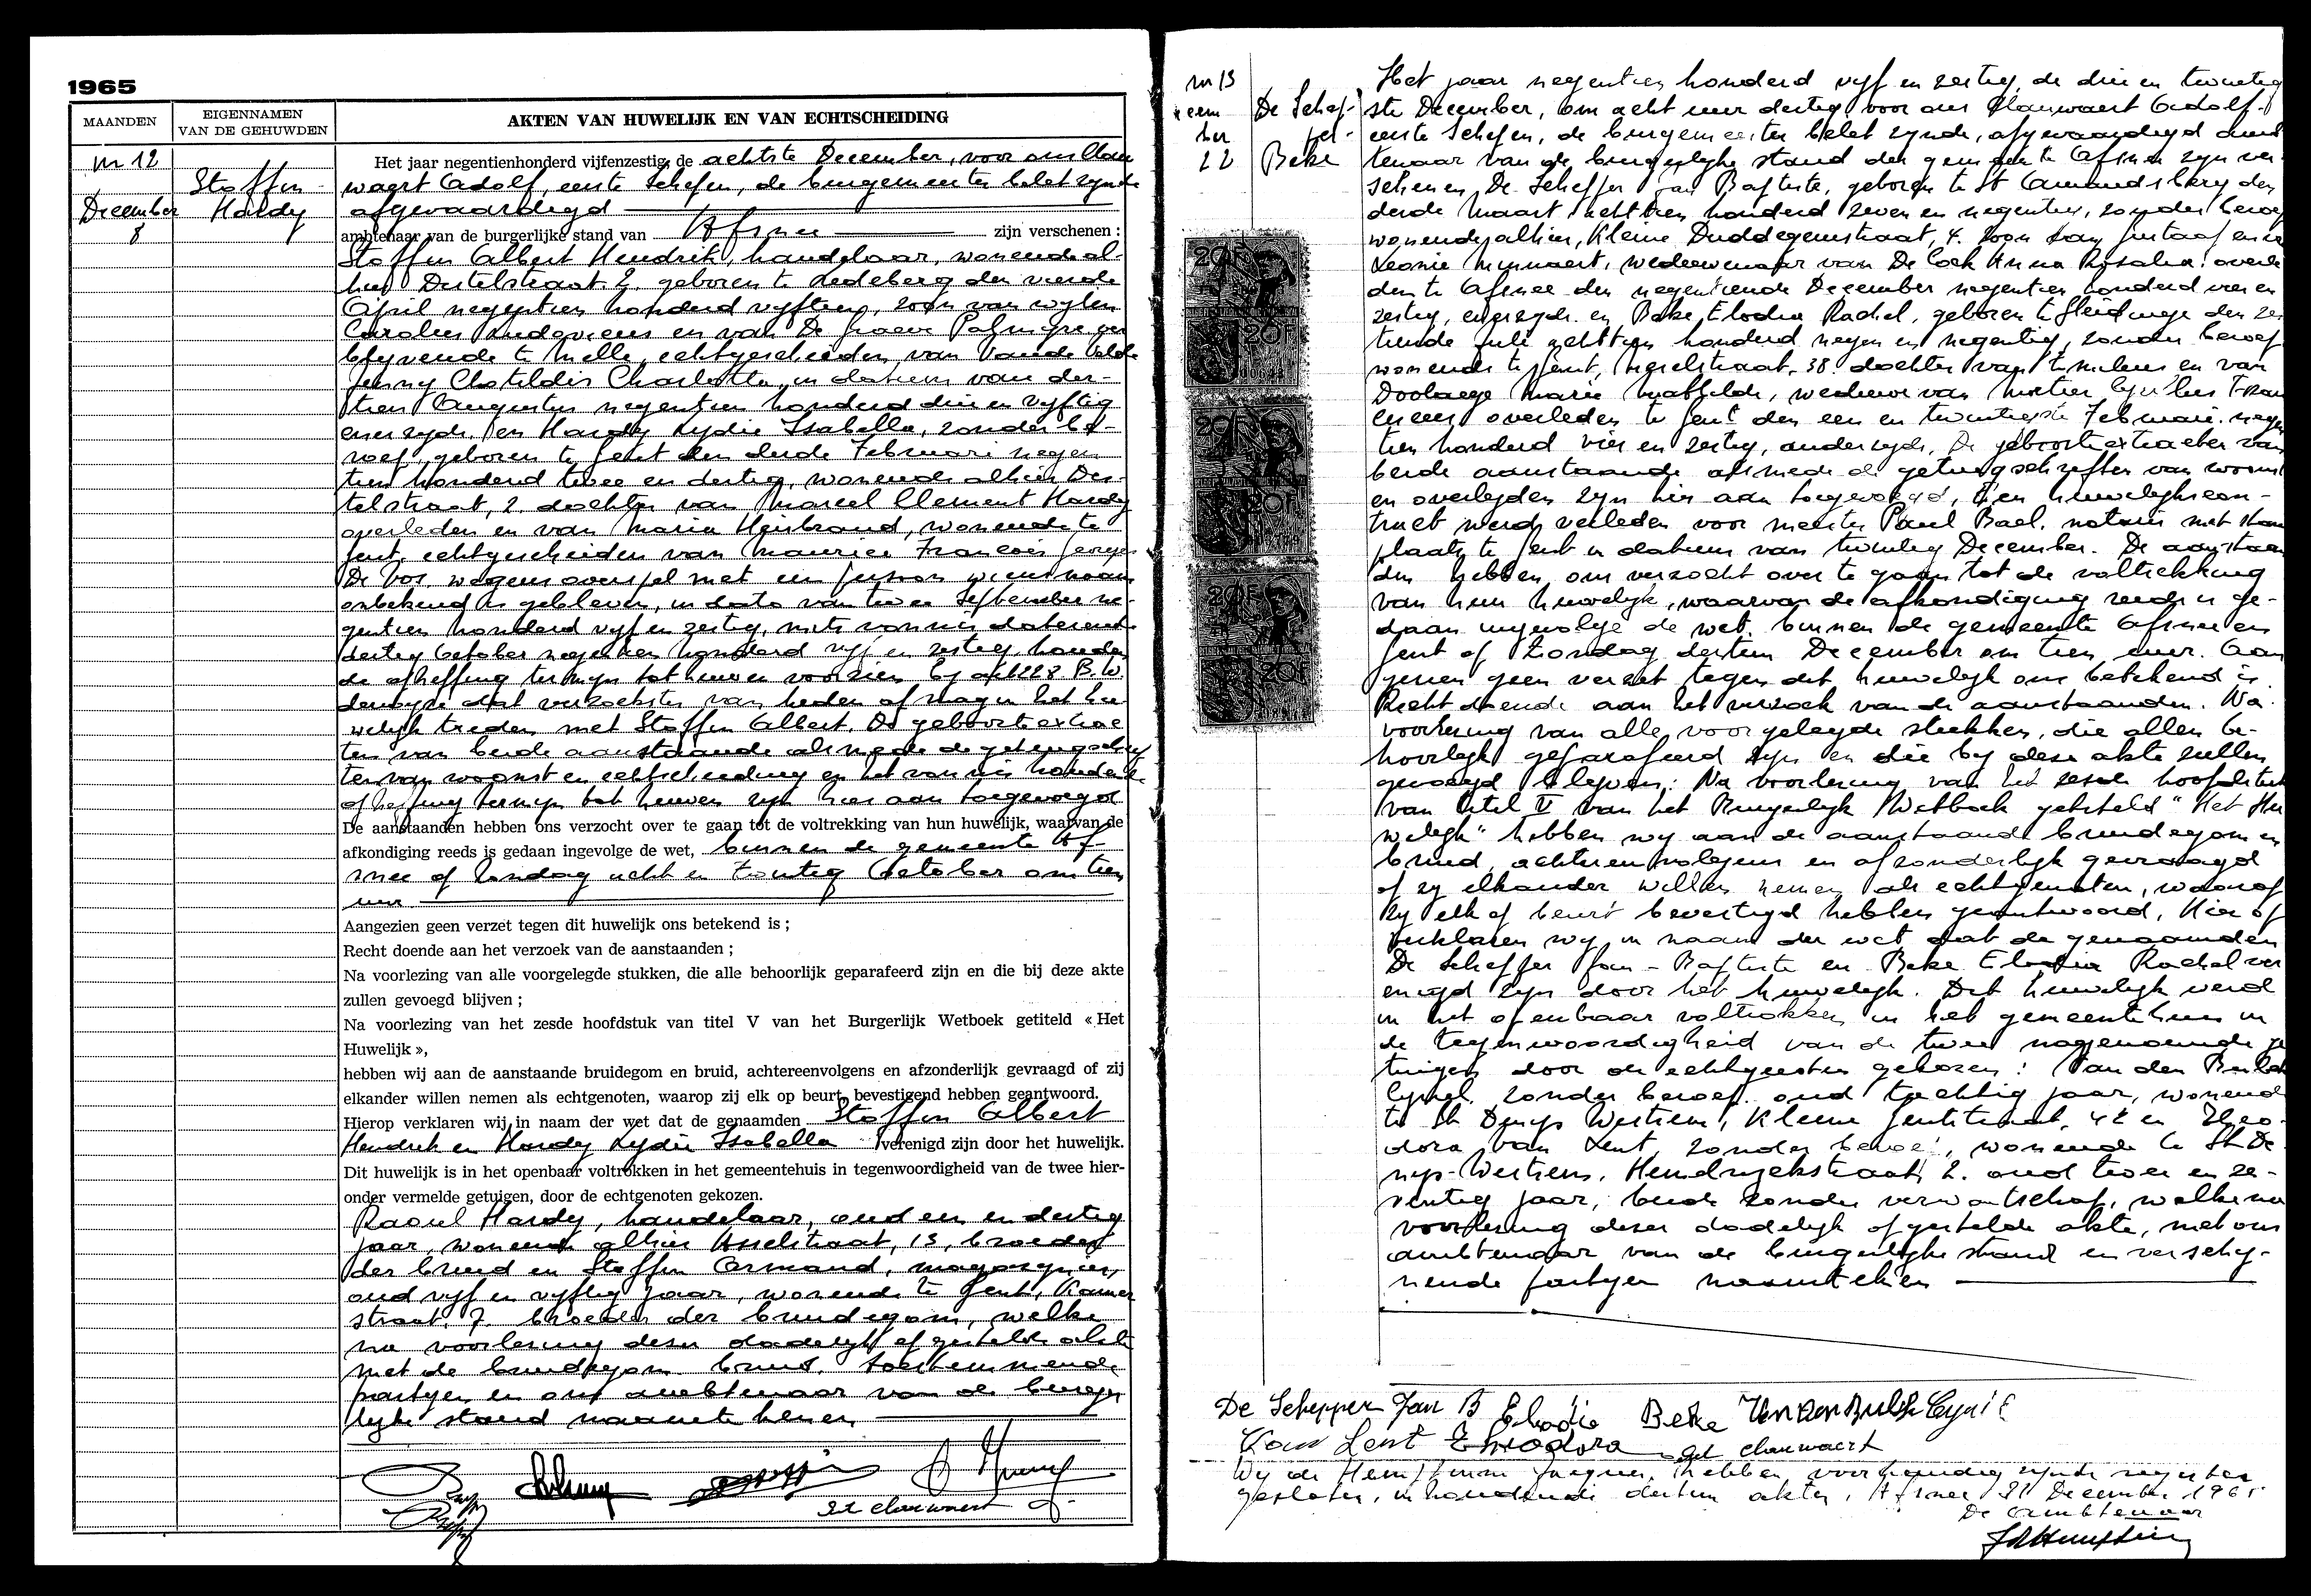 1965
MAANDEN
EIGENNAMEN
VAN DE GEHUWDEN
AKTEN VAN HUWELIJK EN VAN ECHTSCHEIDING
nr 12
December
8
Stoffin
Hardy
Het jaar negentienhonderd vijfenzestig, de achtste December, voor ons Clau
waert Adolf, eerste Schepen, de burgemeester belet zynde
afgevaardigd
ambtenaar van de burgerlijke stand van Afsnee zijn verschenen :
Stoffin Albert Hendrik, handelaar, wonende al-
hier Distelstraat 2, geboren te Ledeberg den vierde
April negentien honderd vyftien, zoon van wylen
Carolus Ludovicus en van De Graeve Palmyre ver
blyvende te Melle, echtgescheiden van Vande Velde
Jenny Clotildis Charlotta, in datum van der-
tien Augustus negentien honderd drie en vyftig
enerzyds, en Hardy Lydie Isabella, zonder be-
roep, geboren te Gent den derde Februari negen
tien honderd twee en dertig, wonende alhier Dis-
telstraat, 2. dochter van Marcel Clement Hardy
overleden en van Maria Hersbrand, wonende te
Gent, echtgescheiden van Maurice Francois Georges
De Vos, wegens overspel met een persoon wiens naam
onbekend is gebleven, in dato van twee September ne-
gentien honderd vyf en zestig, mits vonnis daterend
dertig October negentien honderd vyf en zestig, houden
de opheffing termyn tot huwen voorzien by art 228 B.W.
derwyze dat verzoekster van heden af mag in het hu
welyk treden met Stoffin Albert. De geboorteextrac
ten van beide aanstaande alsmede de getuigschrif
ten van woonst en echtscheiding en het vonnis houdende
opheffing termyn tot huwen zyn hier aan toegevoegd
De aanstaanden hebben ons verzocht over te gaan tot de voltrekking van hun huwelijk, waarvan de
afkondiging reeds is gedaan ingevolge de wet, binnen de gemeente Af-
snee op Zondag acht en twintig October om tien
uur
Aangezien geen verzet tegen dit huwelijk ons betekend is ;
Recht doende aan het verzoek van de aanstaanden ;
Na voorlezing van alle voorgelegde stukken, die alle behoorlijk geparafeerd zijn en die bij deze akte
zullen gevoegd blijven ;
Na voorlezing van het zesde hoofdstuk van titel V van het Burgerlijk Wetboek getiteld « Het
Huwelijk »,
hebben wij aan de aanstaande bruidegom en bruid, achtereenvolgens en afzonderlijk gevraagd of zij
elkander willen nemen als echtgenoten, waarop zij elk op beurt, bevestigend hebben geantwoord.
Hierop verklaren wij in naam der wet dat de genaamden Stoffin Albert
Hendrik en Hardy Lydie Isabella verenigd zijn door het huwelijk.
Dit huwelijk is in het openbaar voltrokken in het gemeentehuis in tegenwoordigheid van de twee hier-
onder vermelde getuigen, door de echtgenoten gekozen.
Raoul Hardy, handelaar, oud een en dertig
jaar, wonende alhier Asselstraat, 13, broeder
der bruid en Stoffin Armand, magazynier,
oud vyf en vyftig jaar, wonende te Gent, Kamer
straat, 7. broeder der bruidegom, welke
na voorlezing dezer dadelyk opgestelde akte
met de bruidegom bruid, toestemmende
partyen en ons ambtenaar van de burger
lyke stand naamtekenen
get clauwaert
nr 13
cem
ber
22
De Schep-
per -
Beke
Het jaar negentien honderd vyf en zestig, de drie en twintig
ste December, om acht uur dertig, voor ons Clauwaert Adolf
eerste Schepen, de burgemeester belet zynde, afgevaardigd amb
tenaar van de burgerlyke stand der gemeente Afsnee zyn ver
schenen De Schepper Jan Baptiste, geboren te St Amandsberg den
derde Maart achttien honderd zeven en negentig, zonder beroep
wonende alhier, Kleine Duddegemstraat, 4. zoon van Gustaaf en van
Leonie Mynnaert, weduwenaar van De Cock Anna Rosalia overle
den te Afsnee den negentiende December negentien honderd vier en
zestig, enerzyds. en Beke Elodia Rachel, geboren te Sleidinge den ze
tiende Juli achttien honderd negen en negentig, zonder beroep
wonende te Gent, Meerelstraat, 38. dochter van Emilius en van
Doolaege Marie Mathilde, weduwe van Metier Cyrillus Fran
ciscus overleden te Gent den een en twintigste Februari negen
tien honderd vier en zestig, anderzyds. De geboorteextracten van
beide aanstaande alsmede de getuigschriften van woonst
en overlyden zyn hier aan toegevoegd. Een huwelykscon-
tract werd verleden voor meester Paul Bael, notaris met stand
plaats te Gent in datum van twintig December. De aanstaan
den hebben ons verzocht over te gaan tot de voltrekking
van hun huwelyk, waarvan de afkondiging reeds is ge-
daan ingevolge de wet, binnen de gemeente Afsnee en
Gent op Zondag dertien December om tien uur. Aan
gezien geen verzet tegen dit huwelyk ons betekend is.
Recht doende aan het verzoek van de aanstaanden. Na
voorlezing van alle voorgelegde stukken, die allen be-
hoorlyk geparafeerd zyn en die by deze akte zullen
gevoegd blyven: Na voorlezing van het zesde hoofdstuk
van titel V van het Burgerlyk Wetboek getiteld "Het Hu
welyk" hebben wy aan de aanstaande bruidegom en
bruid, achtereenvolgens en afzonderlyk gevraagd
of zy elkander willen nemen als echtgenoten, waarop
zy elk op beurt bevestigd hebben geantwoord, Hierop
verklaren wy in naam der wet dat de genaamden
De Schepper Jan-Baptiste en Beke Elodia Rachel ver
enigd zyn door het huwelyk. Dit huwelyk werd
in het openbaar voltrokken in het gemeentehuis in
de tegenwoordigheid van de twee nagenoemde ge
tuigen door de echtgenoten gekozen: Van den Bulck
Cyriel. zonder beroep. oud tachtig jaar, wonende
te St Denys Westrem, Kleine Gentstraat, 42 en Theo
dora Van Lent, zonder beroep, wonende te St De
nys-Westrem, Hendryckstraat, 2. oud twee en ze-
ventig jaar, beide zonder verwantschap, welke na
voorlezing dezer dadelyk opgestelde akte, met ons
ambtenaar van de burgerlyke stand en verschy-
nende partyen naamtekenen
De Schepper Jan B Elodie Beke Van den Bulck Cyriel
Van Lent Theodora get clauwaert
Wy de Hemptinne Jacques, hebben voorhandig zynde register
gesloten, inhoudende dertien akten, Afsnee 31 December 1965
De ambtenaar